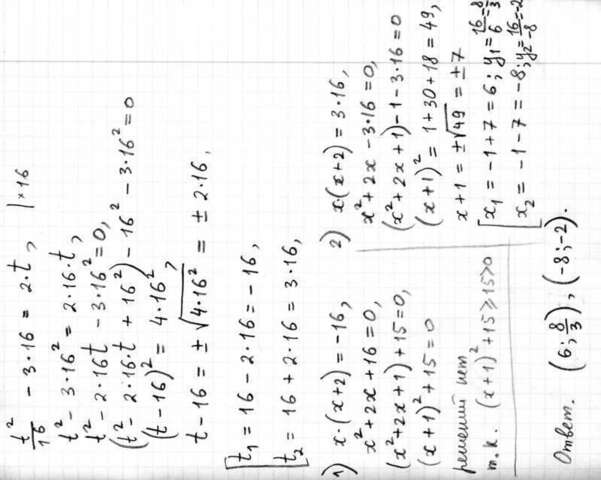 t²/16 - 3·16 = 2·t, |×16
t² - 3·16² = 2·16·t,
t² - 2·16t - 3·16² = 0,
(t² - 2·16·t + 16²) - 16² - 3·16² = 0
(t - 16)² = 4·16²,
t - 16 = ±√4·16² = ± 2·16,
[t₁ = 16 - 2·16 = -16,
t₂ = 16 + 2·16 = 3·16,
1) x·(x+2) = -16,
x² + 2x + 16 = 0,
(x² + 2x + 1) + 15 = 0,
(x+1)² + 15 = 0
решений нет
т.к. (x+1)² + 15 ≥ 15 > 0
2) x·(x+2) = 3·16,
x² + 2x - 3·16 = 0,
(x² + 2x + 1) - 1 - 3·16 = 0
(x+1)² = 1 + 30 + 18 = 49,
x + 1 = ±√49 = ±7
[x₁ = -1 + 7 = 6; y₁ = 16/6 = 8/3
x₂ = -1 - 7 = -8; y₂ = 16/-8 = -2
Ответ. (6; 8/3); (-8; -2).